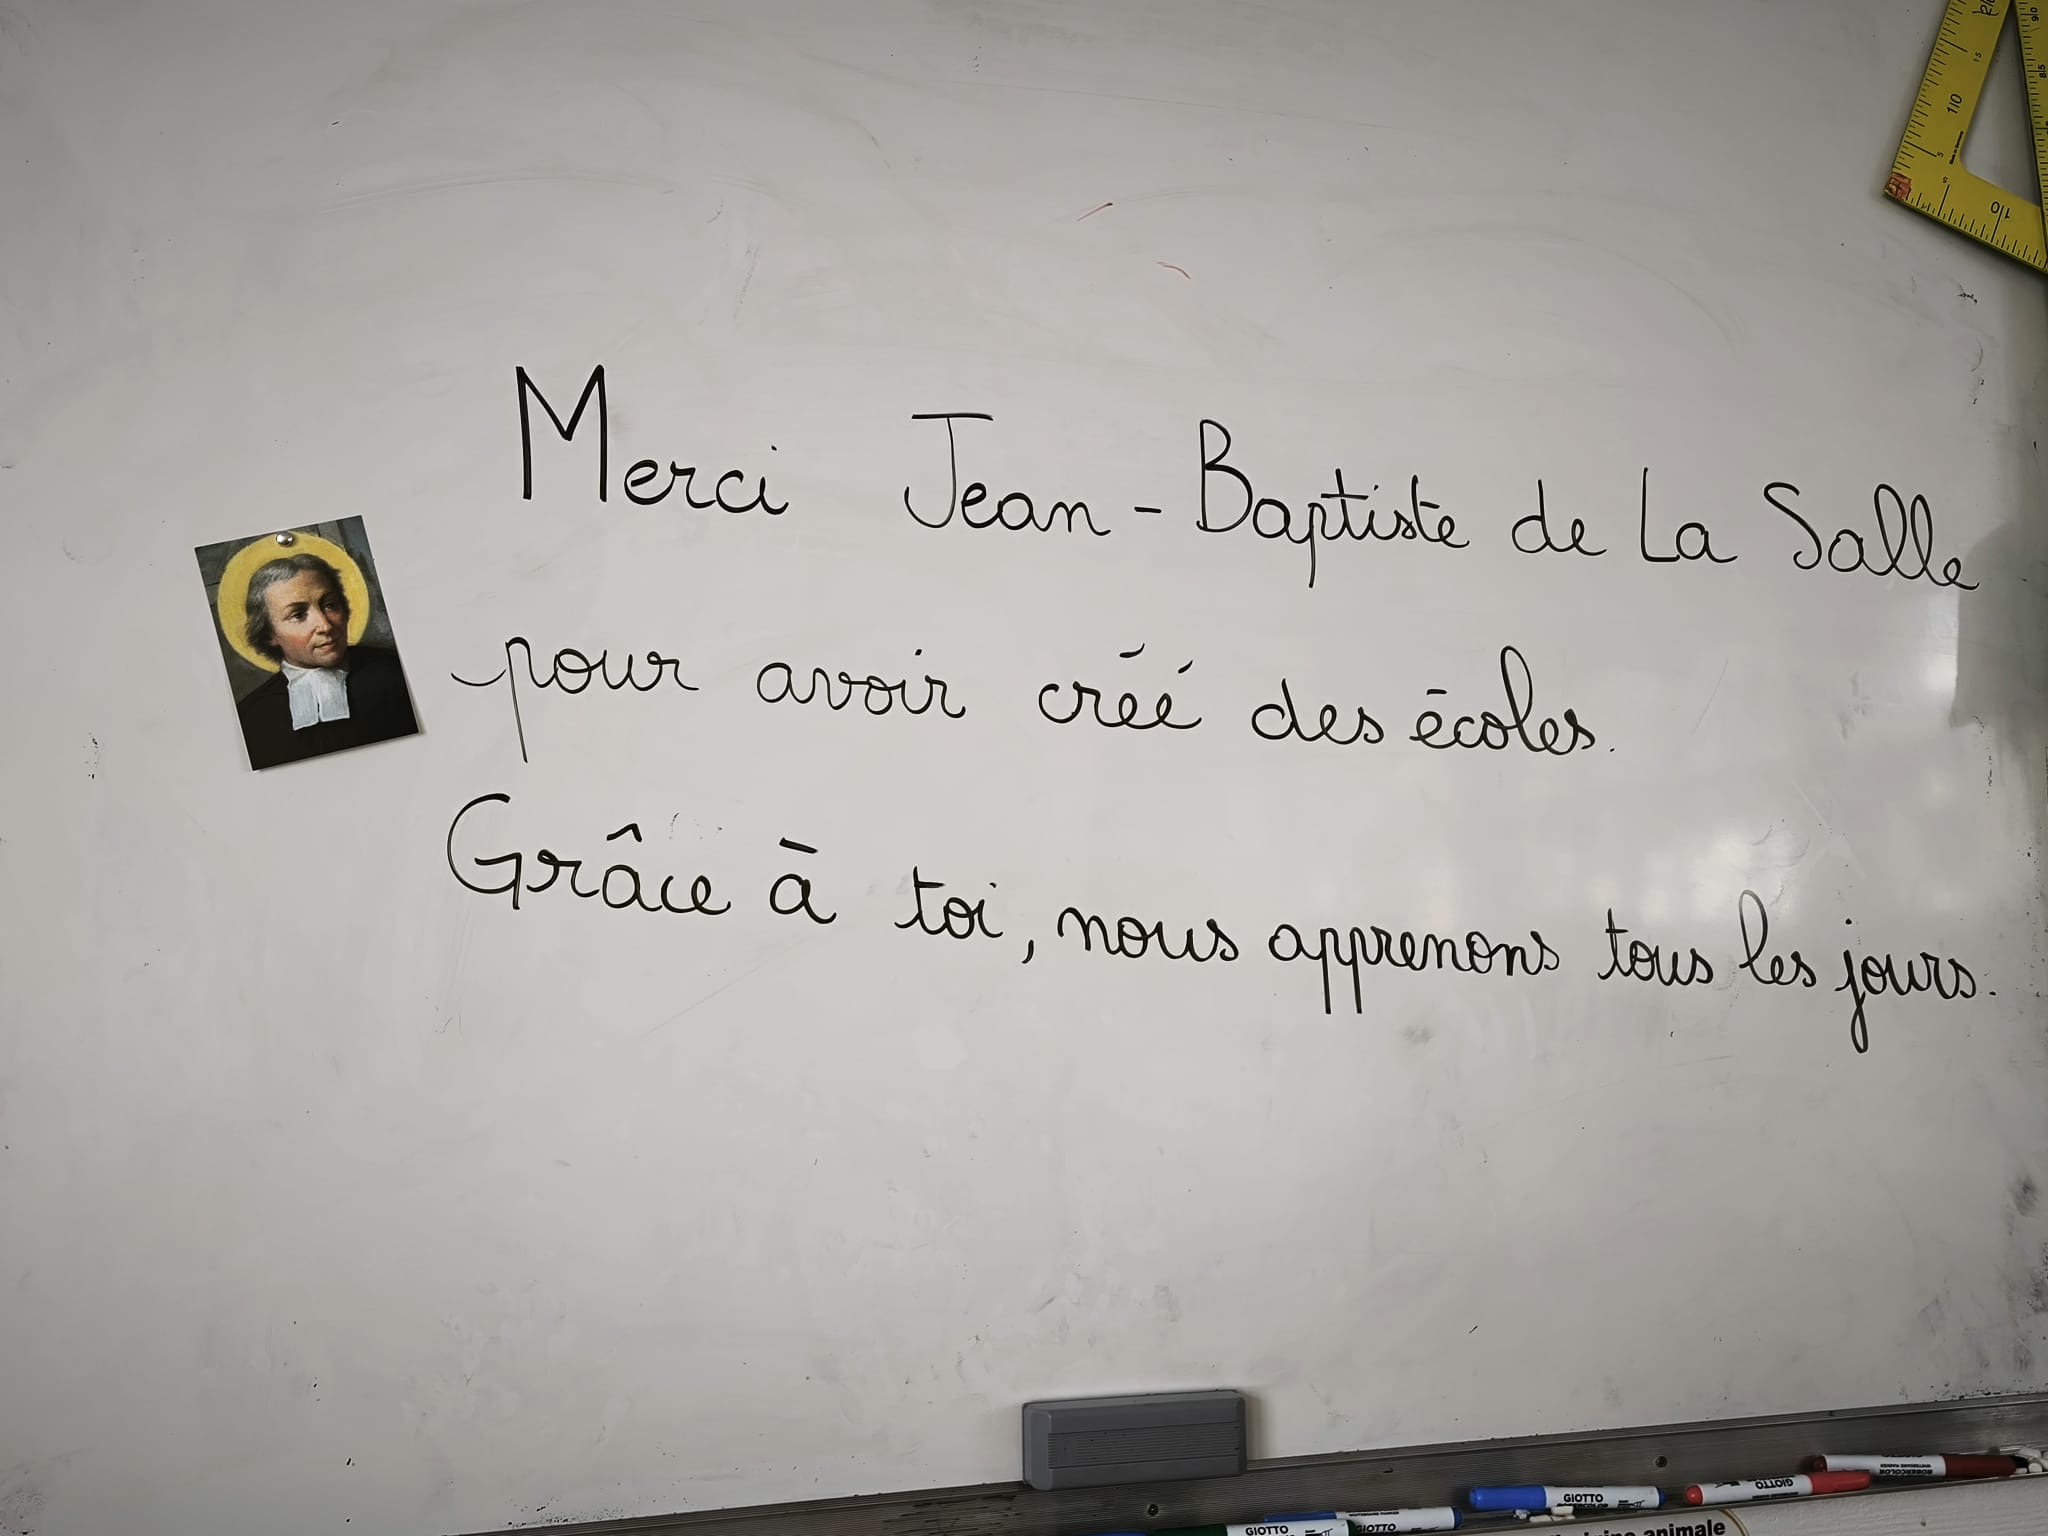 Merci Jean-Baptiste de La Salle
pour avoir créé des écoles.
Grâce à toi, nous apprenons tous les jours.
GIOTTO
GIOTTO
GIOTTO
GIOTTO
ROBERCOLOR
animale